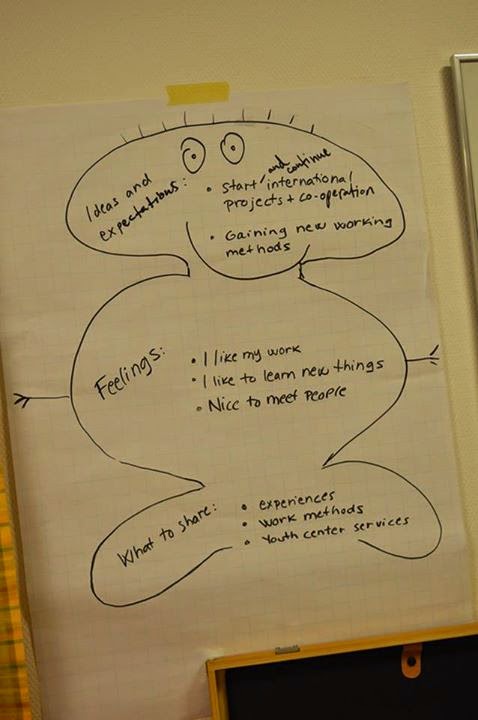 Ideas and
expectations:
• Start and continue international
projects + co-operation
• Gaining new working
methods
Feelings:
• I like my work
• I like to learn new things
• Nice to meet people
What to share:
• experiences
• work methods
• Youth center services